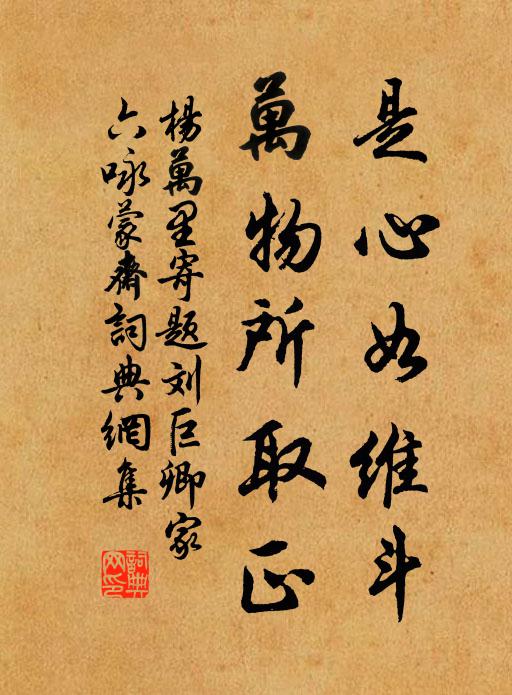 是心如维斗
萬物所取正
楊萬里寄题刘巨卿家
六咏蒙齋詞典網集
詞典網印